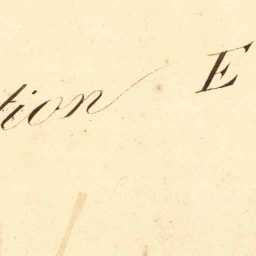 tion E